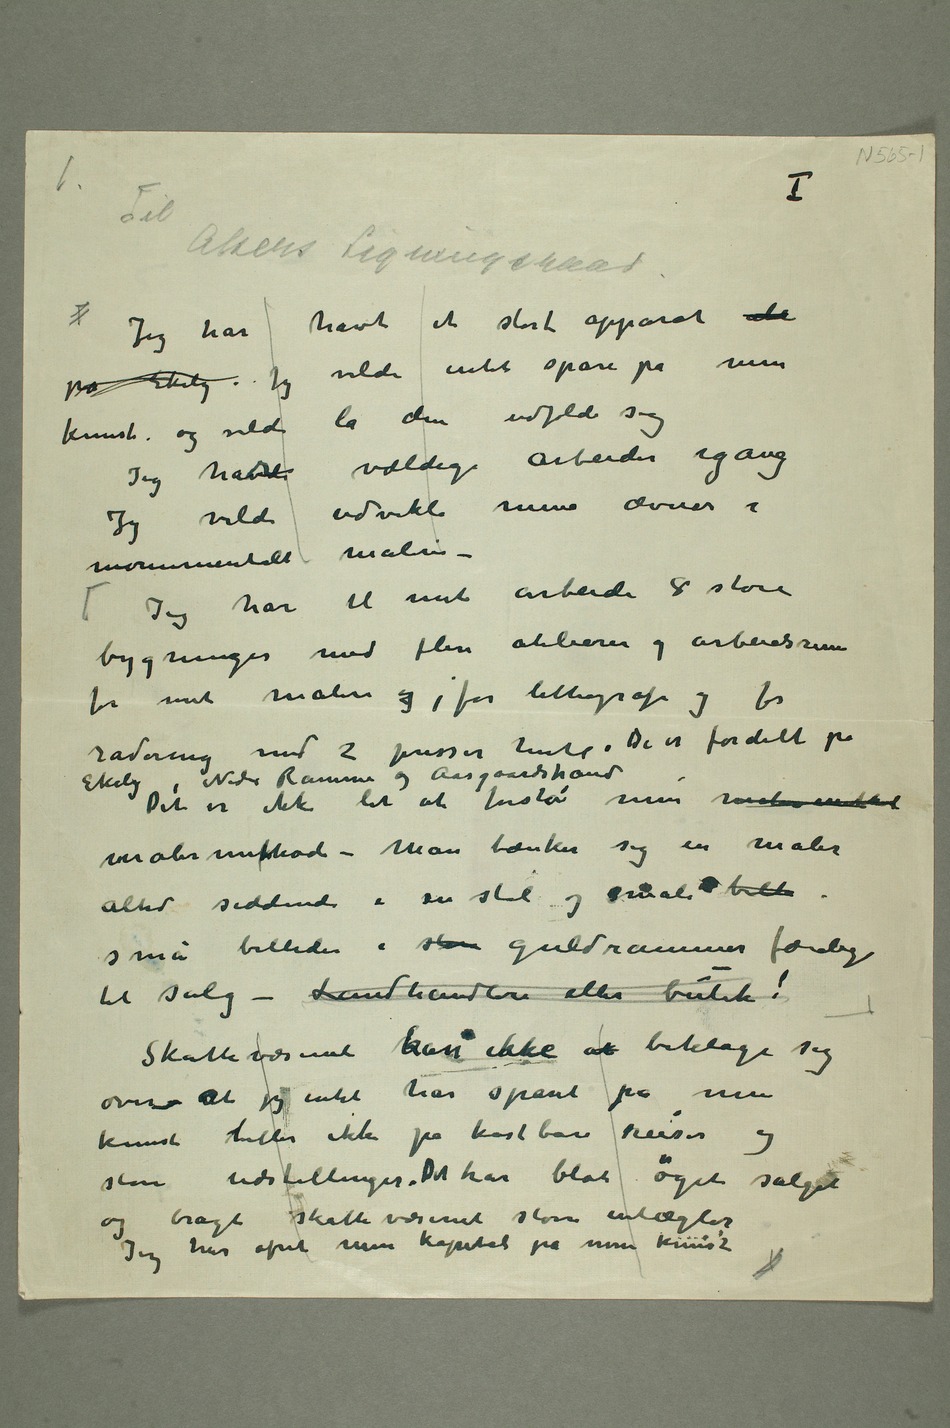 N565-1
1.
I
Til
Akers Ligningsraad.
# Jeg har havt et stort apparat
på Ekely. Jg vilde intet spare på min
kunst. og vilde la den udfolde sig
Jeg havde vældige arbeider igang
Jg vilde udvikle mine ævner i
monumentalt maleri –
Jeg har til mit arbeide 8 store
bygninger med flere atelierer og arbeidsrum
for mit maleri og for lithografi og for
radering med 2 presser hertil. De er fordelt på
Ekely, Nedre Ramme og Aasgaardstrand
Det er ikke let at forstå min
malermethode – Man tænker sig en maler
altid siddende i en stol og male billder
små billeder i store guldrammer færdige
til salg – Landhandleri eller butik!
Skattevæsenet kan ikke at beklage sig
over at jeg intet har spart på min
kunst heller ikke på kostbare reiser og
store udstillinger. Det har blot öget salget
og bragt skattevæsenet store indtægter
Jeg har ofret min kapital på min kunst #